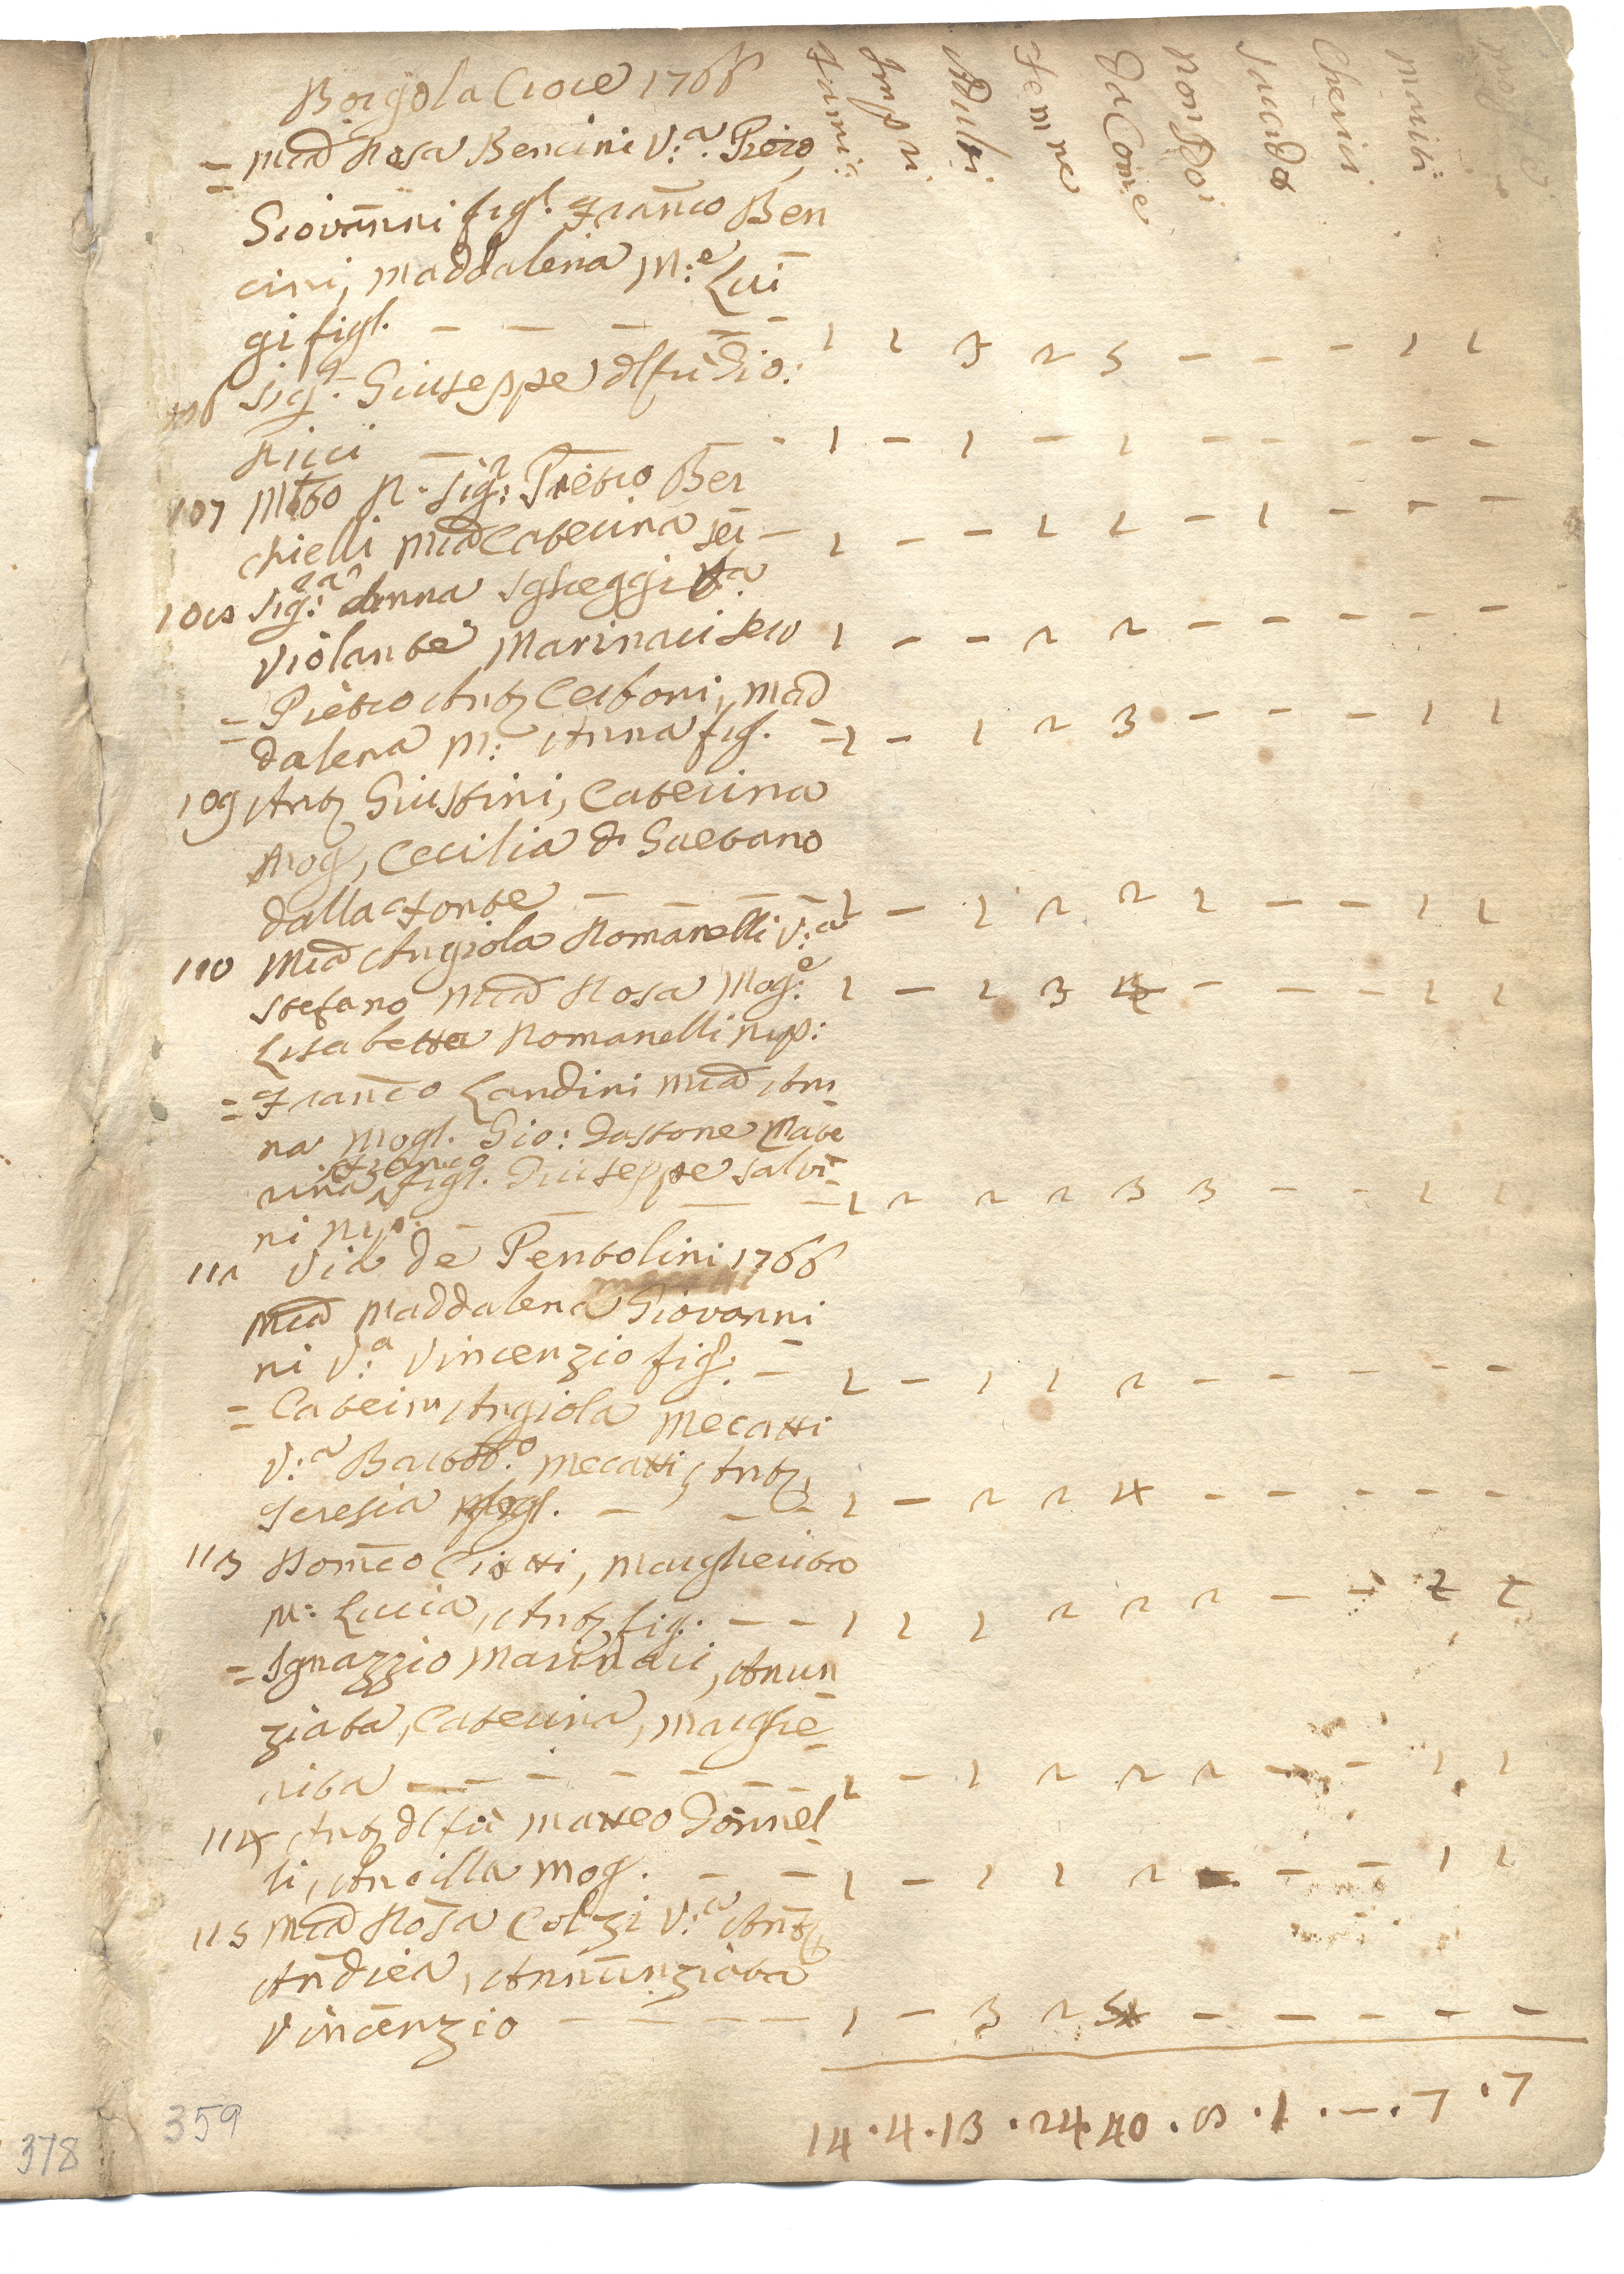 Borgo la Croce 1766
Fami: Impu: Adulti Femne da Comne non da Coi Sacerdo Cherici mariti: mogle
= Mad Rosa Bencini V:a Piero
Giovanni figl. Franco Ben
cini, Maddalena M:e Lui
gi figl. — — — — 1 1 3 2 5 — — — 1 1
106 Sig:r Giuseppe dl fu Dio:
Ricci — — — 1 — 1 — 1 — — — — —
107 Mto R. Sig:r Pietro Ber
chielli Mad Caterina ser — 1 — — 1 1 — 1 — — —
108 Sig:ra Anna Sgheggi V:a
Violante Marinari seco 1 — — 2 2 — — — — —
= Pietro Anto Cerboni, Mad
dalena M: Anna figl. — 1 — 1 2 3 — — — 1 1
109 Anto Giustini, Caterina
Mog, Cecilia di Gaetano
dalla Fonte — — — 1 — 1 2 2 1 — — 1 1
110 Mad Angiola Romanelli V:a
Stefano Mad Rosa Mog:e 1 — 1 3 4 — — — 1 1
Lisabetta Romanelli nip:
= Franco Landini Mad An
na Mogl. Gio: Gastone Cate
rina Franco figl. Giuseppe Salvi
ni nip. — — — — 1 2 2 2 3 3 — — 1 1
112 Via de Pentolini 1766
Mad Maddalena Giovanni
ni V:a Vincenzio figl: — 1 — 1 1 2 — — — — —
= Caterina Angiola Mecatti
V:a Bartol:o Mecatti, Anto,
Teresia figl. — — — 1 — 2 2 4 — — — — —
113 Romeo Ciatti, Margherita
M: Lucia, Anto fig. — — 1 1 1 2 2 2 — — 1 1
= Ignazzio Marinari, Anun
ziata, Caterina, Marghe
rita — — — — — — 1 — 1 2 2 2 — — 1 1
114 Anto dl fu Matteo Donnel
li, Ancilla Mog. — — 1 — 1 1 2 — — — 1 1
115 Mad Rosa Colzi V:a Anto,
Andrea, Annunziata
Vincenzio — — — — 1 — 3 2 5 — — — — —
14 . 4 . 13 . 24 . 40 . 8 . 1 . — . 7 . 7
359
378